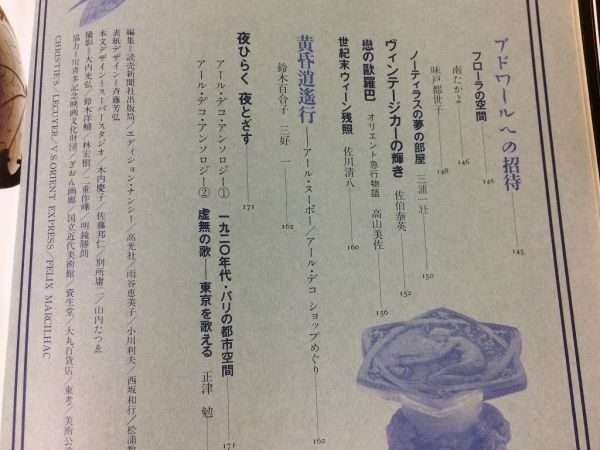 ブドワールへの招待 145
フローラの空間 146
南たかよ 146
味戸都世子 148
ノーティラスの夢の部屋 三浦一壮 150
ヴィンテージカーの輝き 佐伯泰英 152
悲の歐羅巴 オリエント急行物語 高山美佐 156
世紀末ウィーン残照 佐川清八 160
黄昏逍遙行──アール・ヌーボー/アール・デコ ショップめぐり 162
鈴木百合子 三好一 162
夜ひらく 夜とざす 171
アール・デコ・アンソロジー① 一九二〇年代・パリの都市空間
アール・デコ・アンソロジー② 虚無の歌──東京を歌える 正津 勉 171
編集=読売新聞社出版局/エディション・ナンシー/高光社/雨谷恵美子/小川利夫/西坂和行/松浦
表紙デザイン=斉藤芳弘
本文デザイン=スーパースタジオ/木内慶子/佐藤邦仁/別所庸二/山内たつゑ
撮影=大内光弘/鈴木洋輔/林宏樹/二重作曄/明鏡勝朗
協力=川喜多記念映画文化財団/ぎおん画廊/国立近代美術館/資生堂/大丸百貨店/東考/美術公
CHRISTIE'S/LECUYER/V.S.ORIENT EXPRESS/FELIX MARCILHAC